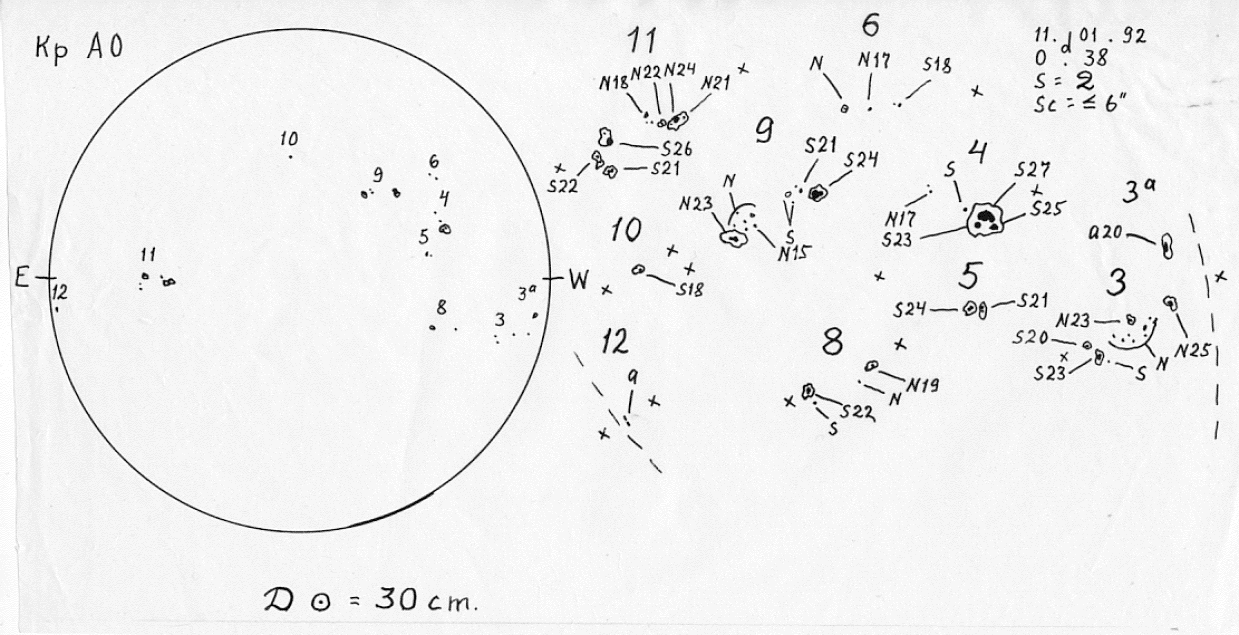 Kp AO
10
9
6
4
5
11
E
12
W
8
3ª
3
D ⊙ = 30 cm.
11
N18 N22 N24 N21
S26
S21
S22
6
N N17 S18
11.d01.92
0.38
S = 2
Sc = ≤ 6"
9
S21
S24
N
N23
S
N15
4
S
S27
S25
N17
S23
3ª
a20
10
S18
5
S24 S21
3
N23
S20
S23
S
N
N25
12
a
8
N19
N
S22
S